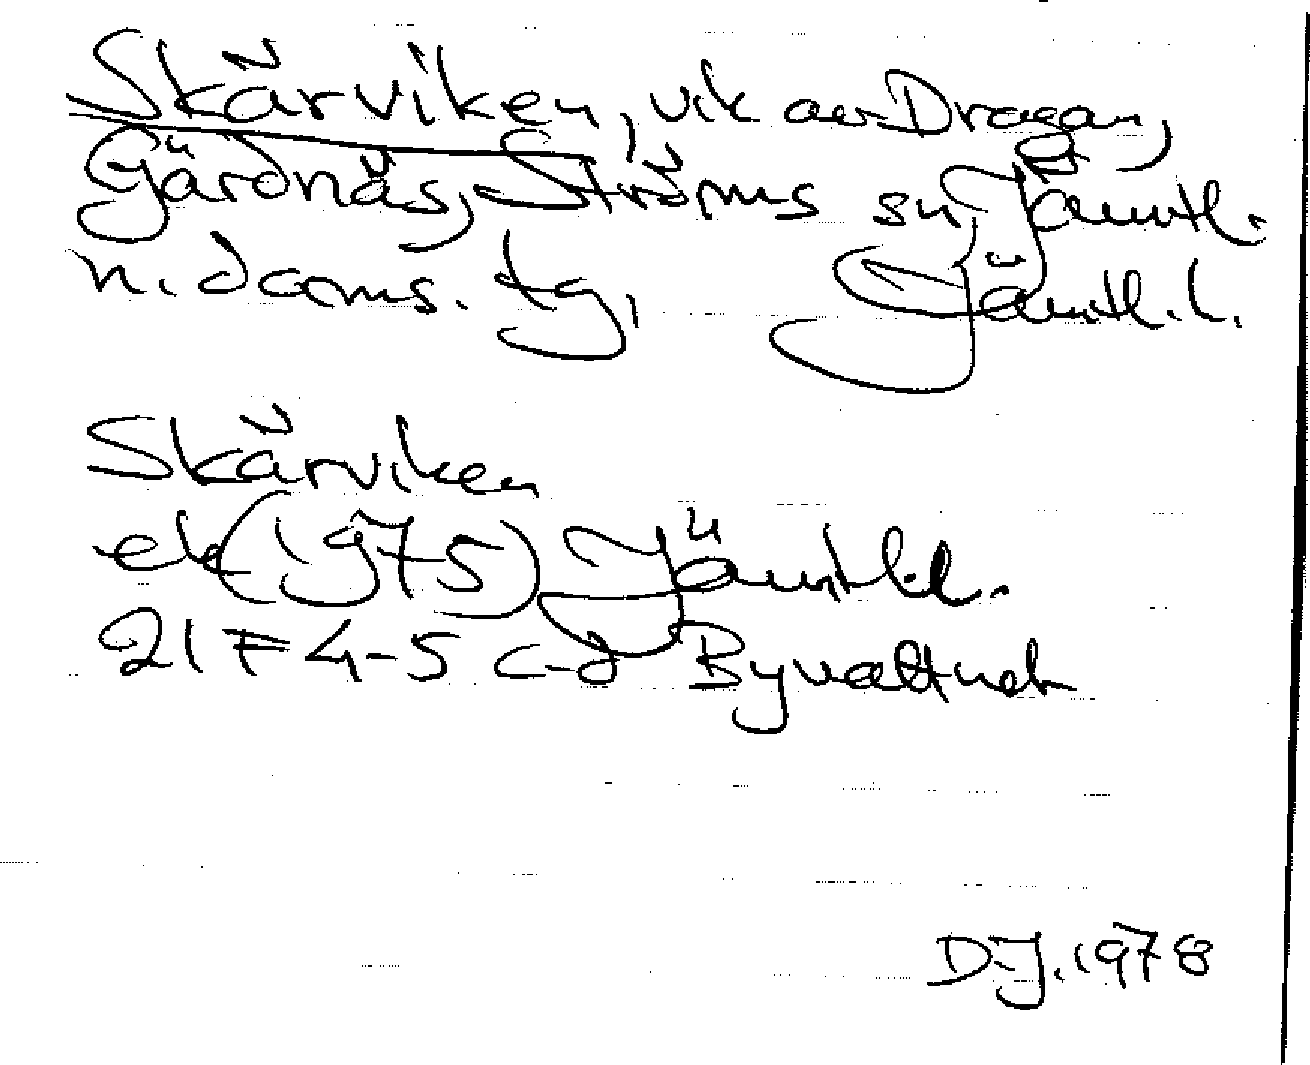 Skärviken, vik av Dragan,
Gärdnäs, Ströms sn, Jämtl.
n. doms. tg, Jämtl. l.
Skärviken
ek (1975) Jämtl.l.
21 F 4-5 c-d Byvattnet
D-J. 1978